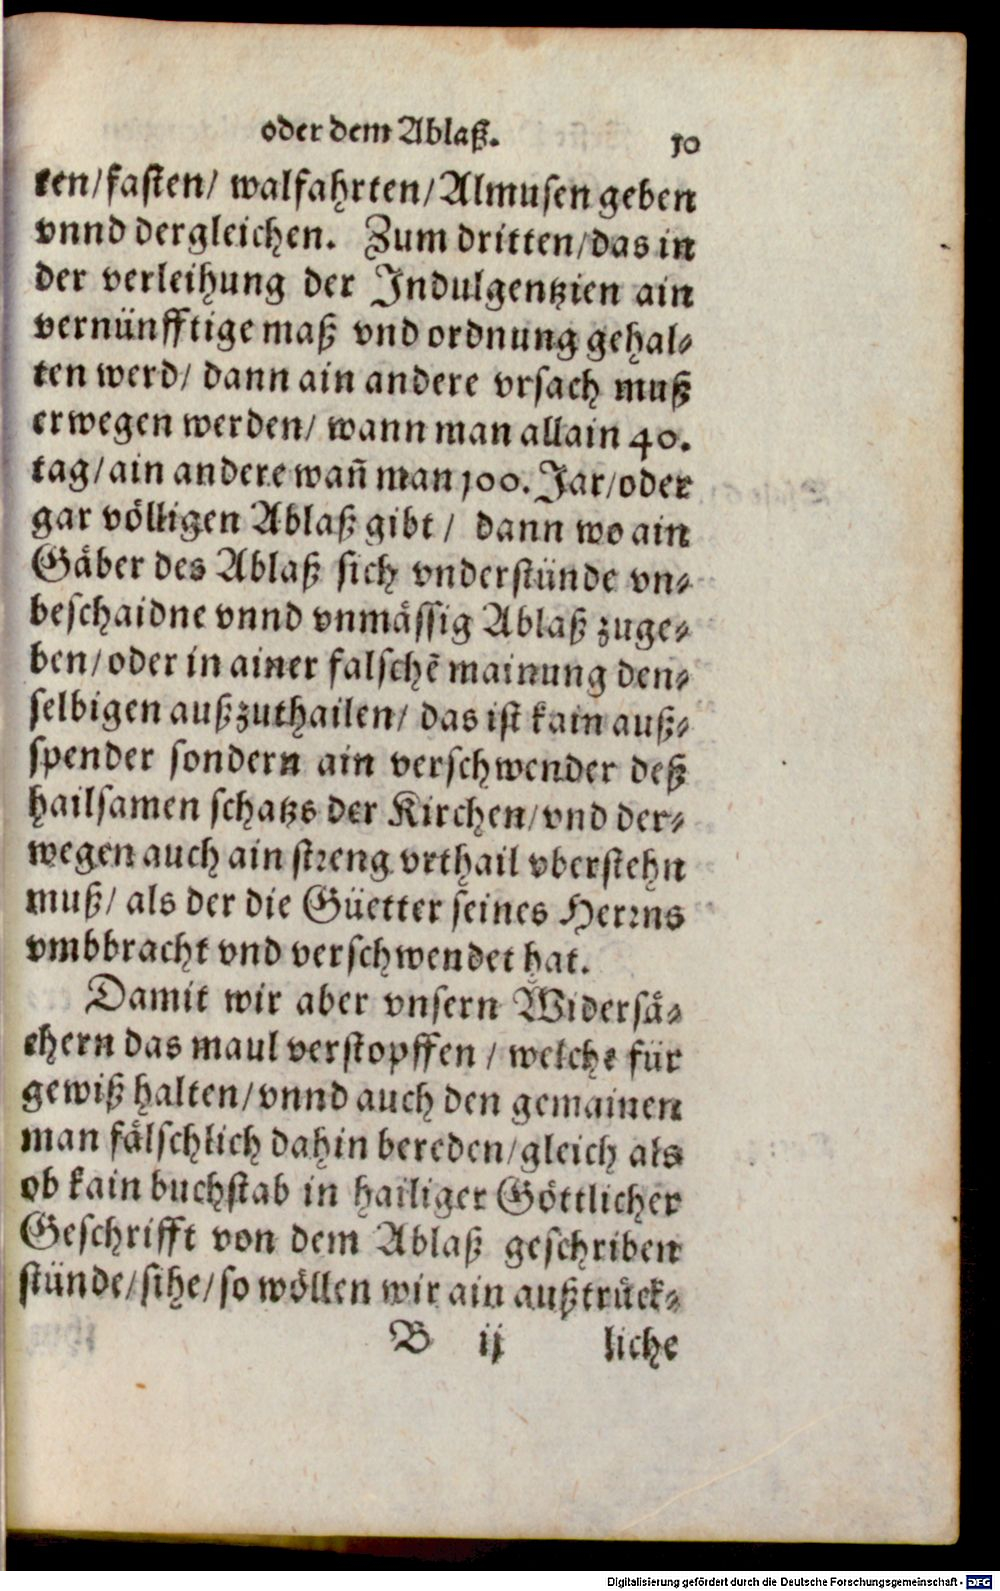 oder dem Ablaß. 10
ten/fasten/ walfahrten/Almusen geben
vnnd dergleichen. Zum dritten/das in
der verleihung der Indulgentzien ain
vernünfftige maß vnd ordnung gehal⸗
ten werd/ dann ain andere vrsach muß
erwegen werden/ wann man allain 40.
tag/ain andere wañ man 100. Jar/oder
gar völligen Ablaß gibt/ dann wo ain
Gäber des Ablaß sich vnderstünde vn⸗
beschaidne vnnd vnmässig Ablaß zuge⸗
ben/oder in ainer falschẽ mainung den⸗
selbigen außzuthailen/ das ist kain auß⸗
spender sondern ain verschwender deß
hailsamen schatzs der Kirchen/vnd der⸗
wegen auch ain streng vrthail vberstehn
muß/ als der die Güetter seines Herrns
vmbbracht vnd verschwendet hat.
Damit wir aber vnsern Widersä⸗
chern das maul verstopffen/ welche für
gewiß halten/vnnd auch den gemainen
man fälschlich dahin bereden/gleich als
ob kain buchstab in hailiger Göttlicher
Geschrifft von dem Ablaß geschriben
stünde/sihe/so wöllen wir ain außtrück⸗
B ij liche
Digitalisierung gefördert durch die Deutsche Forschungsgemeinschaft - DFG